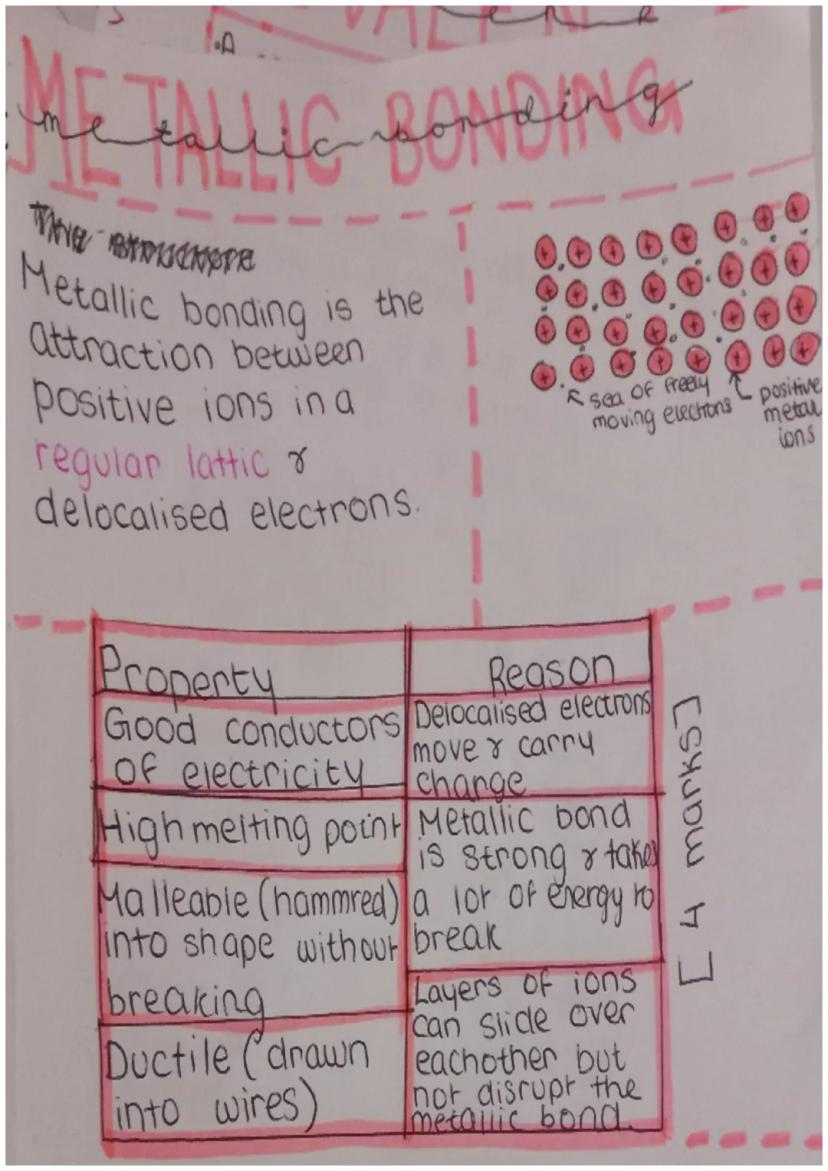 METALLIC BONDING
metallic bonding
The structure
Metallic bonding is the
attraction between
positive ions in a
regular lattic &
delocalised electrons.
sea of freely
moving electrons
positive
metal
ions
Property
Reason
Good conductors
of electricity
Delocalised electrons
move & carry
change
High melting point
Metallic bond
is strong & takes
a lot of energy to
break
Malleable (hammred)
into shape without
breaking
Layers of ions
can slide over
eachother but
not disrupt the
metallic bond.
Ductile (drawn
into wires)
[4 marks]